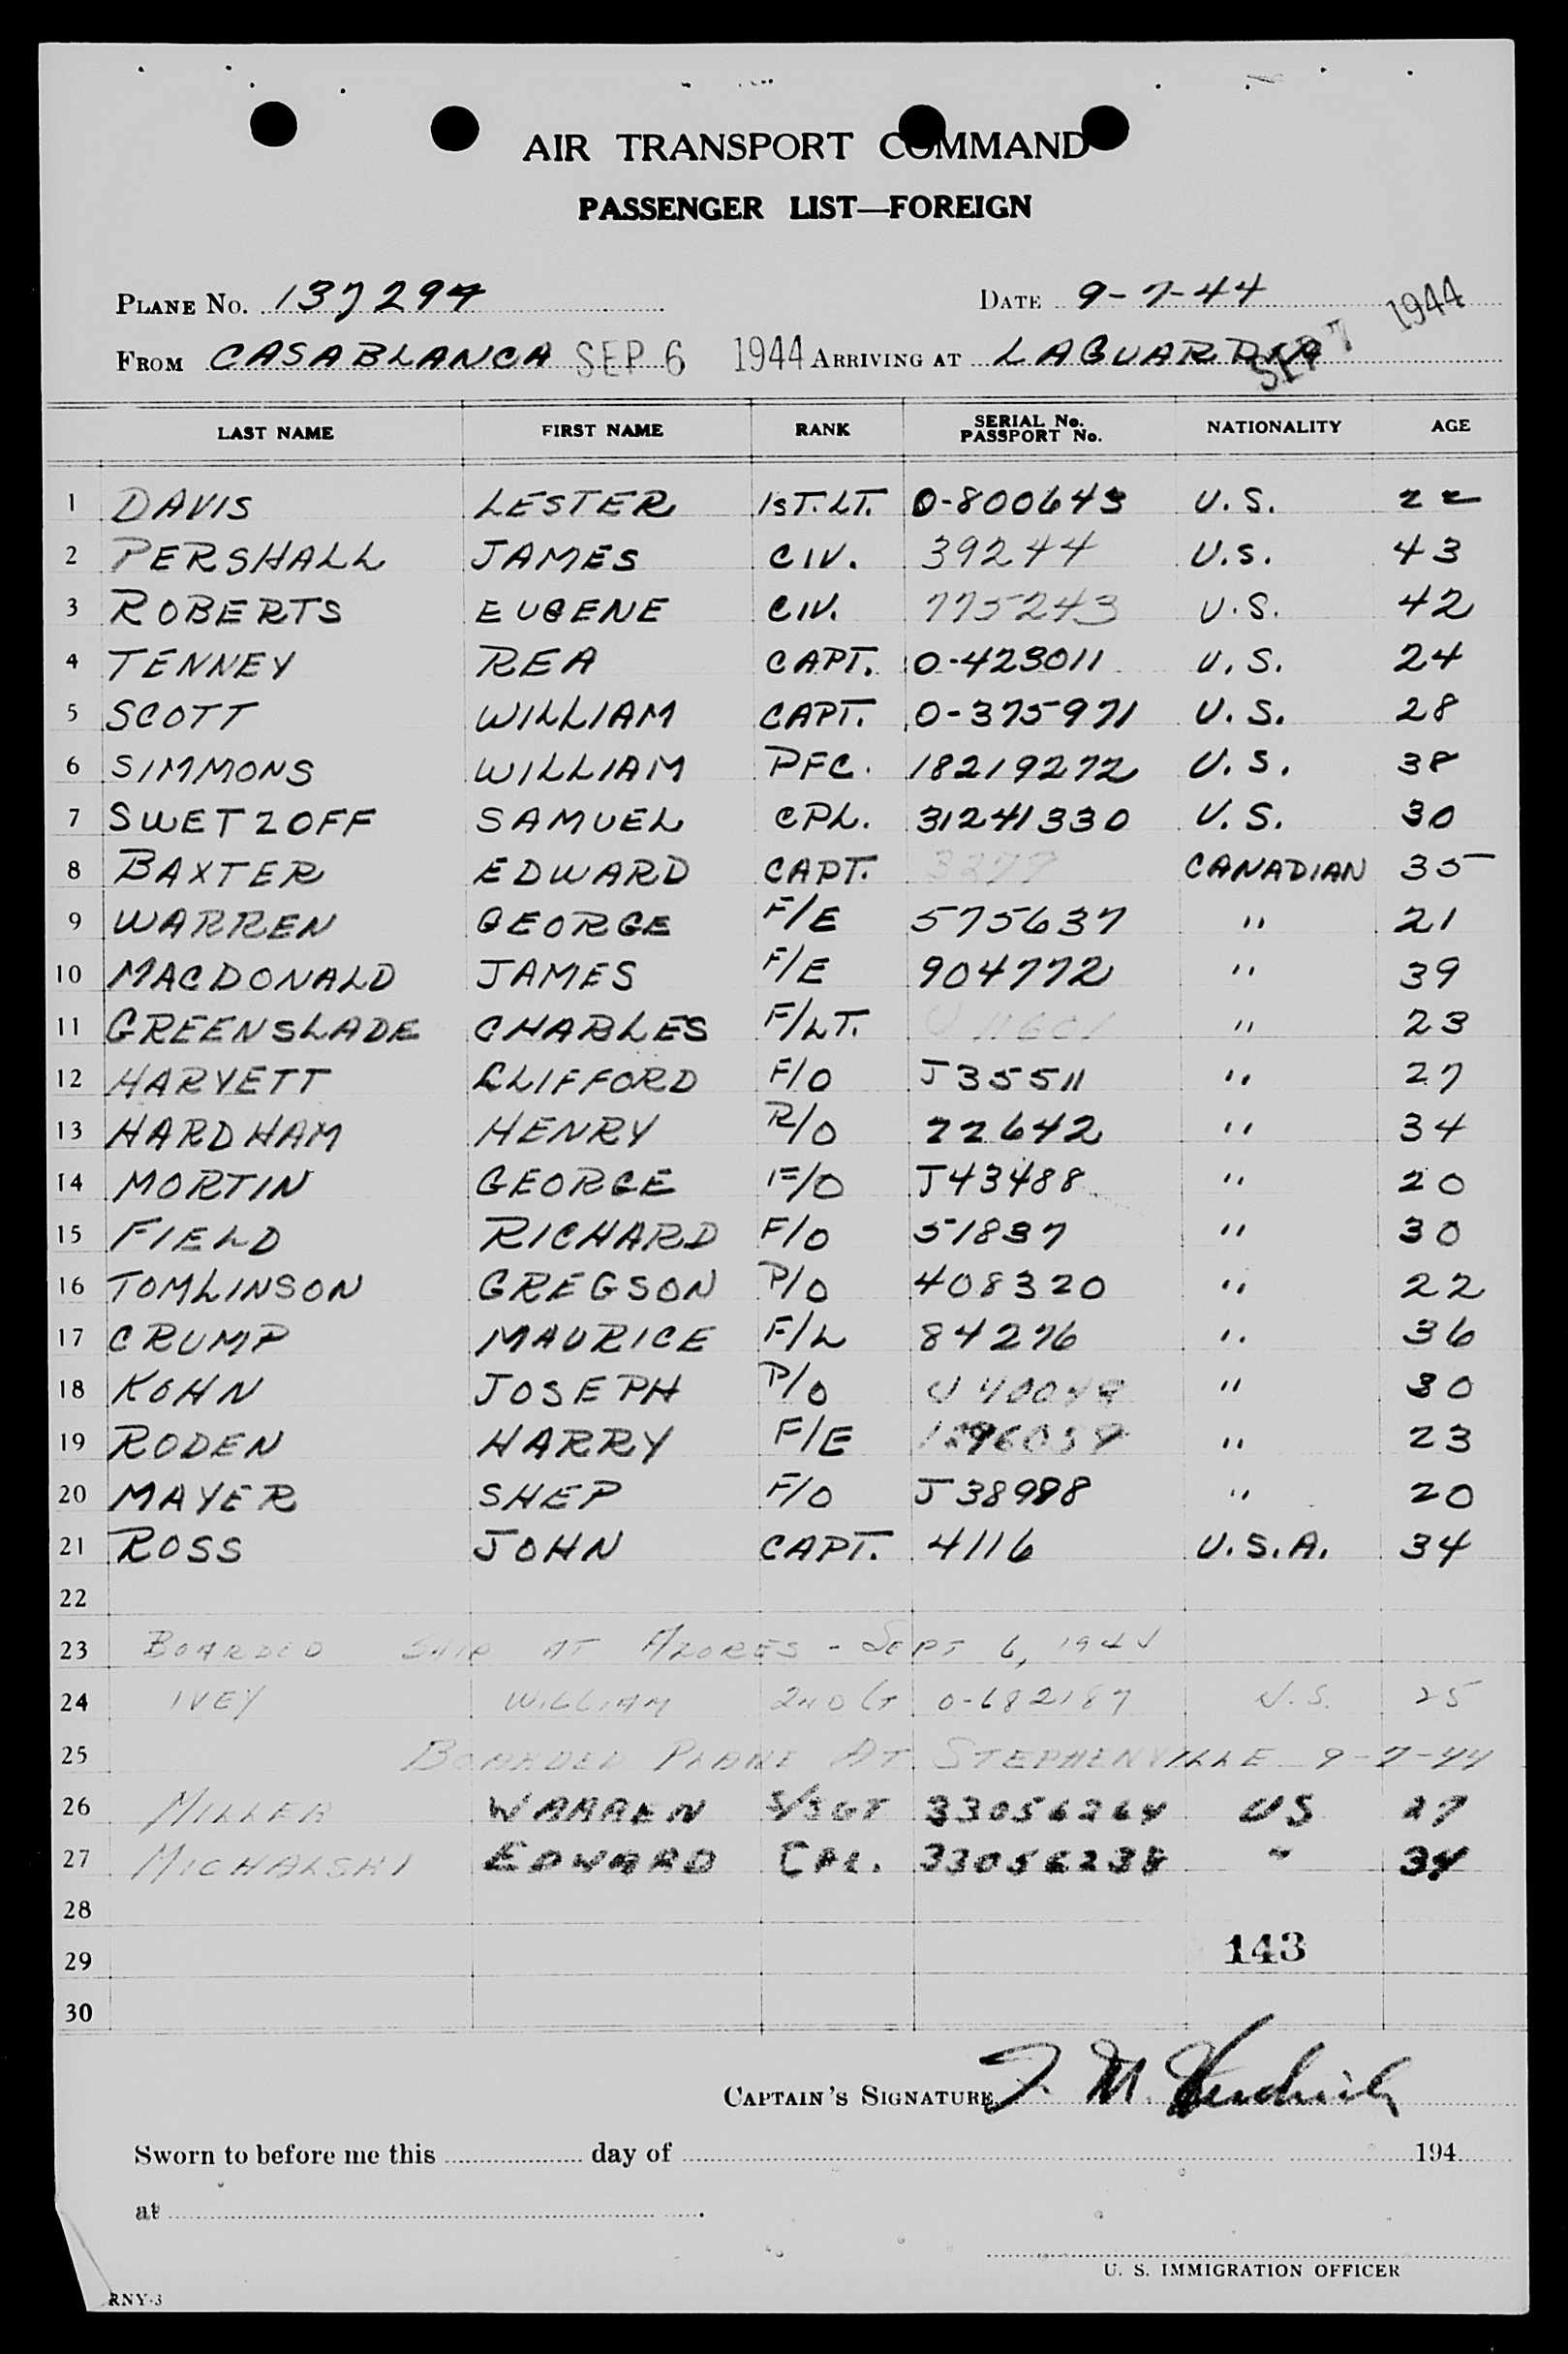 AIR TRANSPORT COMMAND
PASSENGER LIST—FOREIGN
PLANE No. 137294 DATE 9-7-44
FROM CASABLANCA SEP 6 1944 ARRIVING AT LAGUARDIA SEP 7 1944
LAST NAME FIRST NAME RANK SERIAL No. PASSPORT No. NATIONALITY AGE
1 DAVIS LESTER 1ST. LT. O-800643 U.S. 22
2 PERSHALL JAMES CIV. 39244 U.S. 43
3 ROBERTS EUGENE CIV. 775243 U.S. 42
4 TENNEY REA CAPT. O-423011 U.S. 24
5 SCOTT WILLIAM CAPT. O-375971 U.S. 28
6 SIMMONS WILLIAM PFC. 18219272 U.S. 38
7 SWETZOFF SAMUEL CPL. 31241330 U.S. 30
8 BAXTER EDWARD CAPT. 3277 CANADIAN 35
9 WARREN GEORGE F/E 575637 " 21
10 MACDONALD JAMES F/E 904772 " 39
11 GREENSLADE CHARLES F/LT. " 23
12 HARYETT CLIFFORD F/O J35511 " 27
13 HARDHAM HENRY R/O 22642 " 34
14 MORTIN GEORGE F/O J43488 " 20
15 FIELD RICHARD F/O 51837 " 30
16 TOMLINSON GREGSON P/O 408320 " 22
17 CRUMP MAURICE F/L 84276 " 36
18 KOHN JOSEPH P/O " 30
19 RODEN HARRY F/E " 23
20 MAYER SHEP F/O J38998 " 20
21 ROSS JOHN CAPT. 4116 U.S.A. 34
22
23 BOARDED SHIP AT AZORES - SEPT 6, 1944
24 IVEY WILLIAM 2ND LT O-682187 U.S. 25
25 BOARDED PLANE AT STEPHENVILLE 9-7-44
26 MILLER WARREN S/SGT 33056264 US 27
27 MICHALSKI EDWARD CPL. 33056238 " 34
28
29 143
30
CAPTAIN'S SIGNATURE
Sworn to before me this day of 194
at
U. S. IMMIGRATION OFFICER
RNY-3